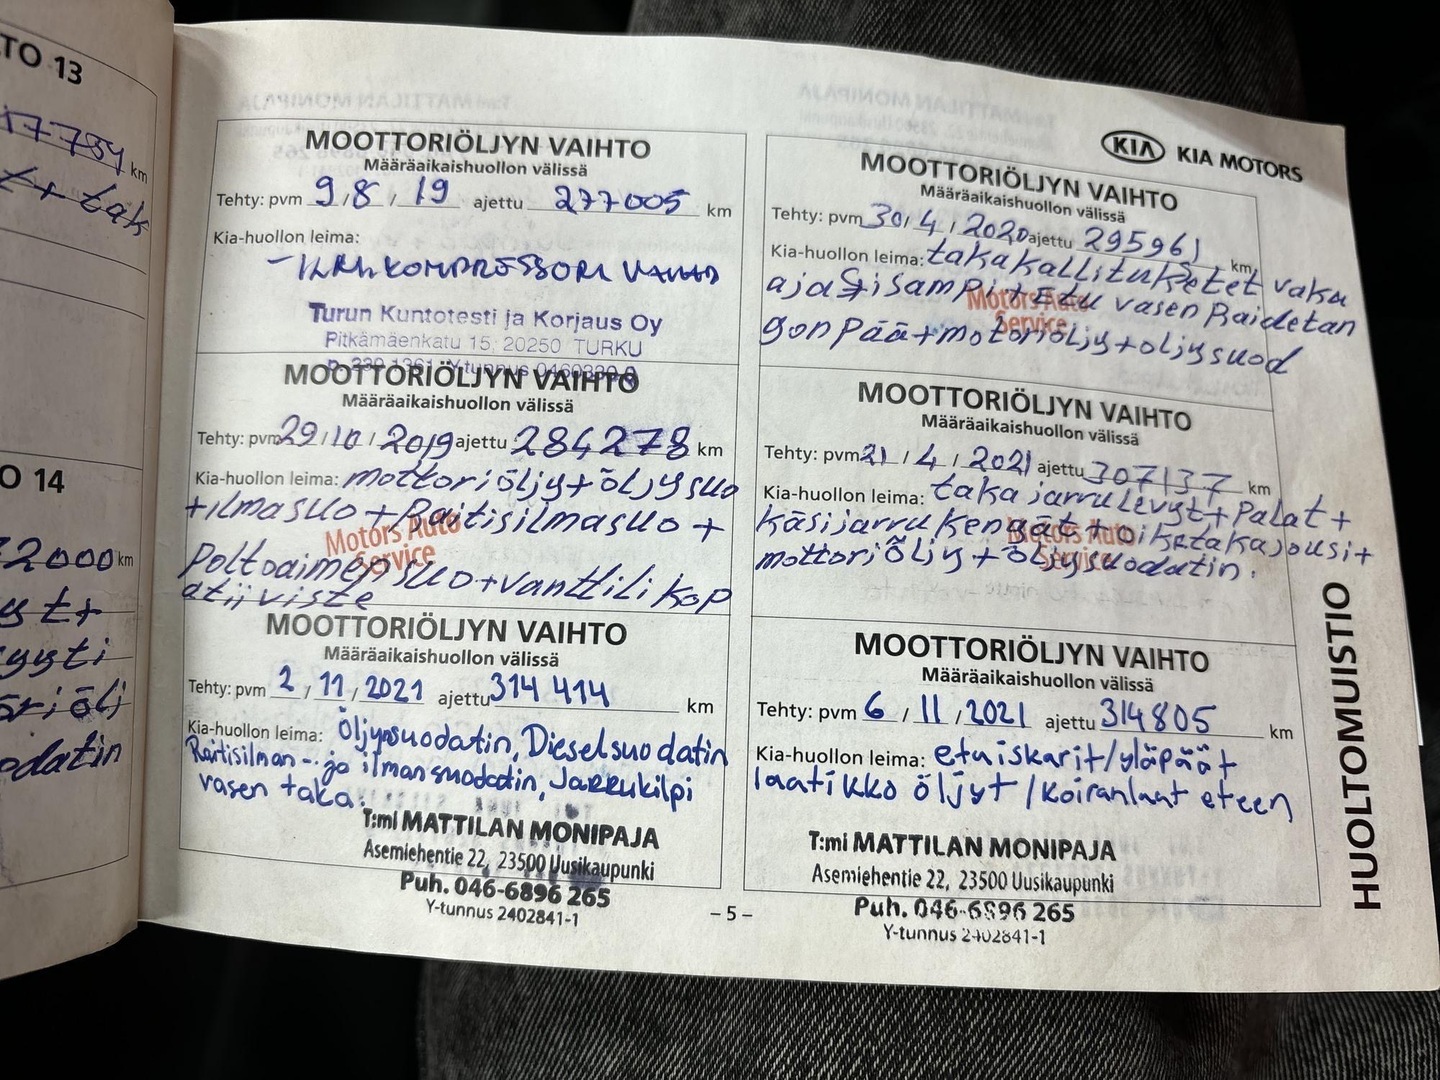 TO 13
17734 km
t+ tak
O 14
32000 km
yt+
yyti
öriölj
odatin
MOOTTORIÖLJYN VAIHTO
Määräaikaishuollon välissä
Tehty: pvm 9 / 8 / 19 ajettu 277005 km
Kia-huollon leima:
- ILM. KOMPRESSORI VAIHD
Turun Kuntotesti ja Korjaus Oy
Pitkämäenkatu 15, 20250 TURKU
MOOTTORIÖLJYN VAIHTO
Määräaikaishuollon välissä
Tehty: pvm 29 / 10 / 2019 ajettu 284278 km
Kia-huollon leima: mottoriöljy+öljysuo
+ilmasuo+Raitisilmasuo+
Motors Auto
Service
Poltoaimensuo+vanttili kop
atiiviste
MOOTTORIÖLJYN VAIHTO
Määräaikaishuollon välissä
Tehty: pvm 2 / 11 / 2021 ajettu 314 414 km
Kia-huollon leima: Öljynsuodatin, Dieselsuodatin
Raitisilman- ja ilmansuodatin, Jarrukilpi
vasen taka.
T:mi MATTILAN MONIPAJA
Asemiehentie 22, 23500 Uusikaupunki
Puh. 046-6896 265
Y-tunnus 2402841-1
KIA KIA MOTORS
MOOTTORIÖLJYN VAIHTO
Määräaikaishuollon välissä
Tehty: pvm 30 / 4 / 2020 ajettu 295961 km
Kia-huollon leima: takakallituketet vaku
aja Sisampi+Etu vasen Raidetan
Motors Auto
Service
gon Pää+motoriöljy+oljysuod
MOOTTORIÖLJYN VAIHTO
Määräaikaishuollon välissä
Tehty: pvm 21 / 4 / 2021 ajettu 307137 km
Kia-huollon leima: takajarrulevyt+Palat+
käsijarrukengät+oiketakajousi+
Motors Auto
Service
mottoriöljy+öljysuodatin.
MOOTTORIÖLJYN VAIHTO
Määräaikaishuollon välissä
Tehty: pvm 6 / 11 / 2021 ajettu 314805 km
Kia-huollon leima: etuiskarit/yläpäät
laatikko öljyt /Koiranluut eteen
T:mi MATTILAN MONIPAJA
Asemiehentie 22, 23500 Uusikaupunki
Puh. 046-6896 265
Y-tunnus 2402841-1
– 5 –
HUOLTOMUISTIO